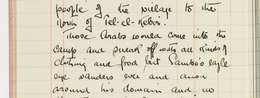 people of the village to the
town of Tel-el-Kebir.
Those Arabs would come into the
camp and sneak off with all kinds of
clothing and food but Sambo's eagle
eye wanders ever and anon
around his domain and no